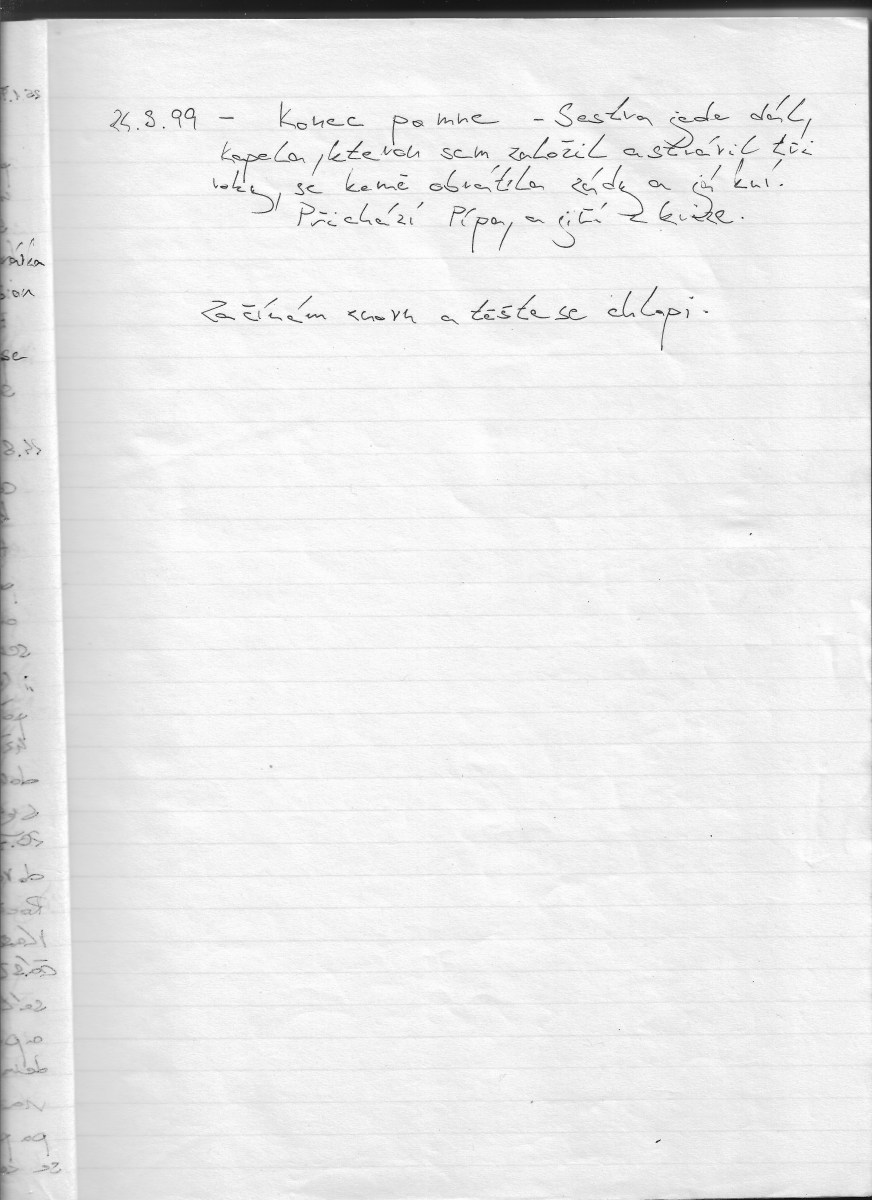 24.3.99 - Konec pomne - Sestra jede dál,
kapela, kterou sem založil a strávil tři
roky, se kemě obrátila zády a já kuí.
Přichází Pípa, a jiří z kvize.
Začínám znovu a těšte se chlapi.